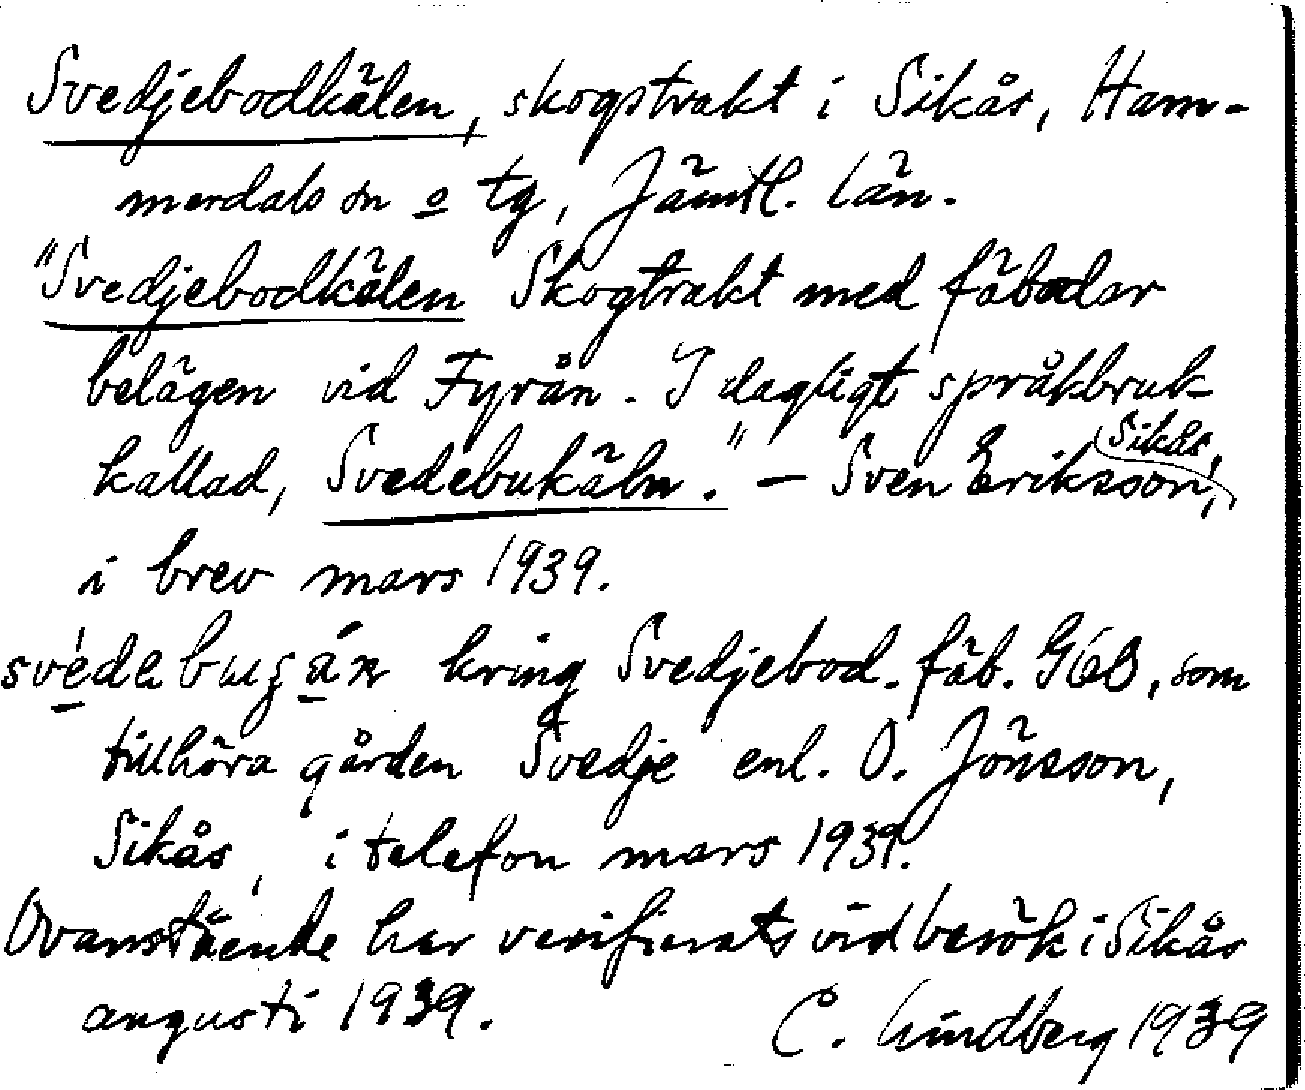 Svedjebodkälen, skogstrakt i Sikås, Ham-
merdals sn o tg, Jämtl. län.
"Svedjebodkälen Skogtrakt med fäbodar
belägen vid Fyrån. I dagligt språkbruk
kallad, Svedebukäln." – Sven Eriksson, Sikås,
i brev mars 1939.
kring Svedjebod. fäb. G6B, som
tillhöra gården Svedje enl. O. Jönsson,
Sikås, i telefon mars 1939.
Ovanstående har verifierats vid besök i Sikås
augusti 1939. C. Lindberg 1939